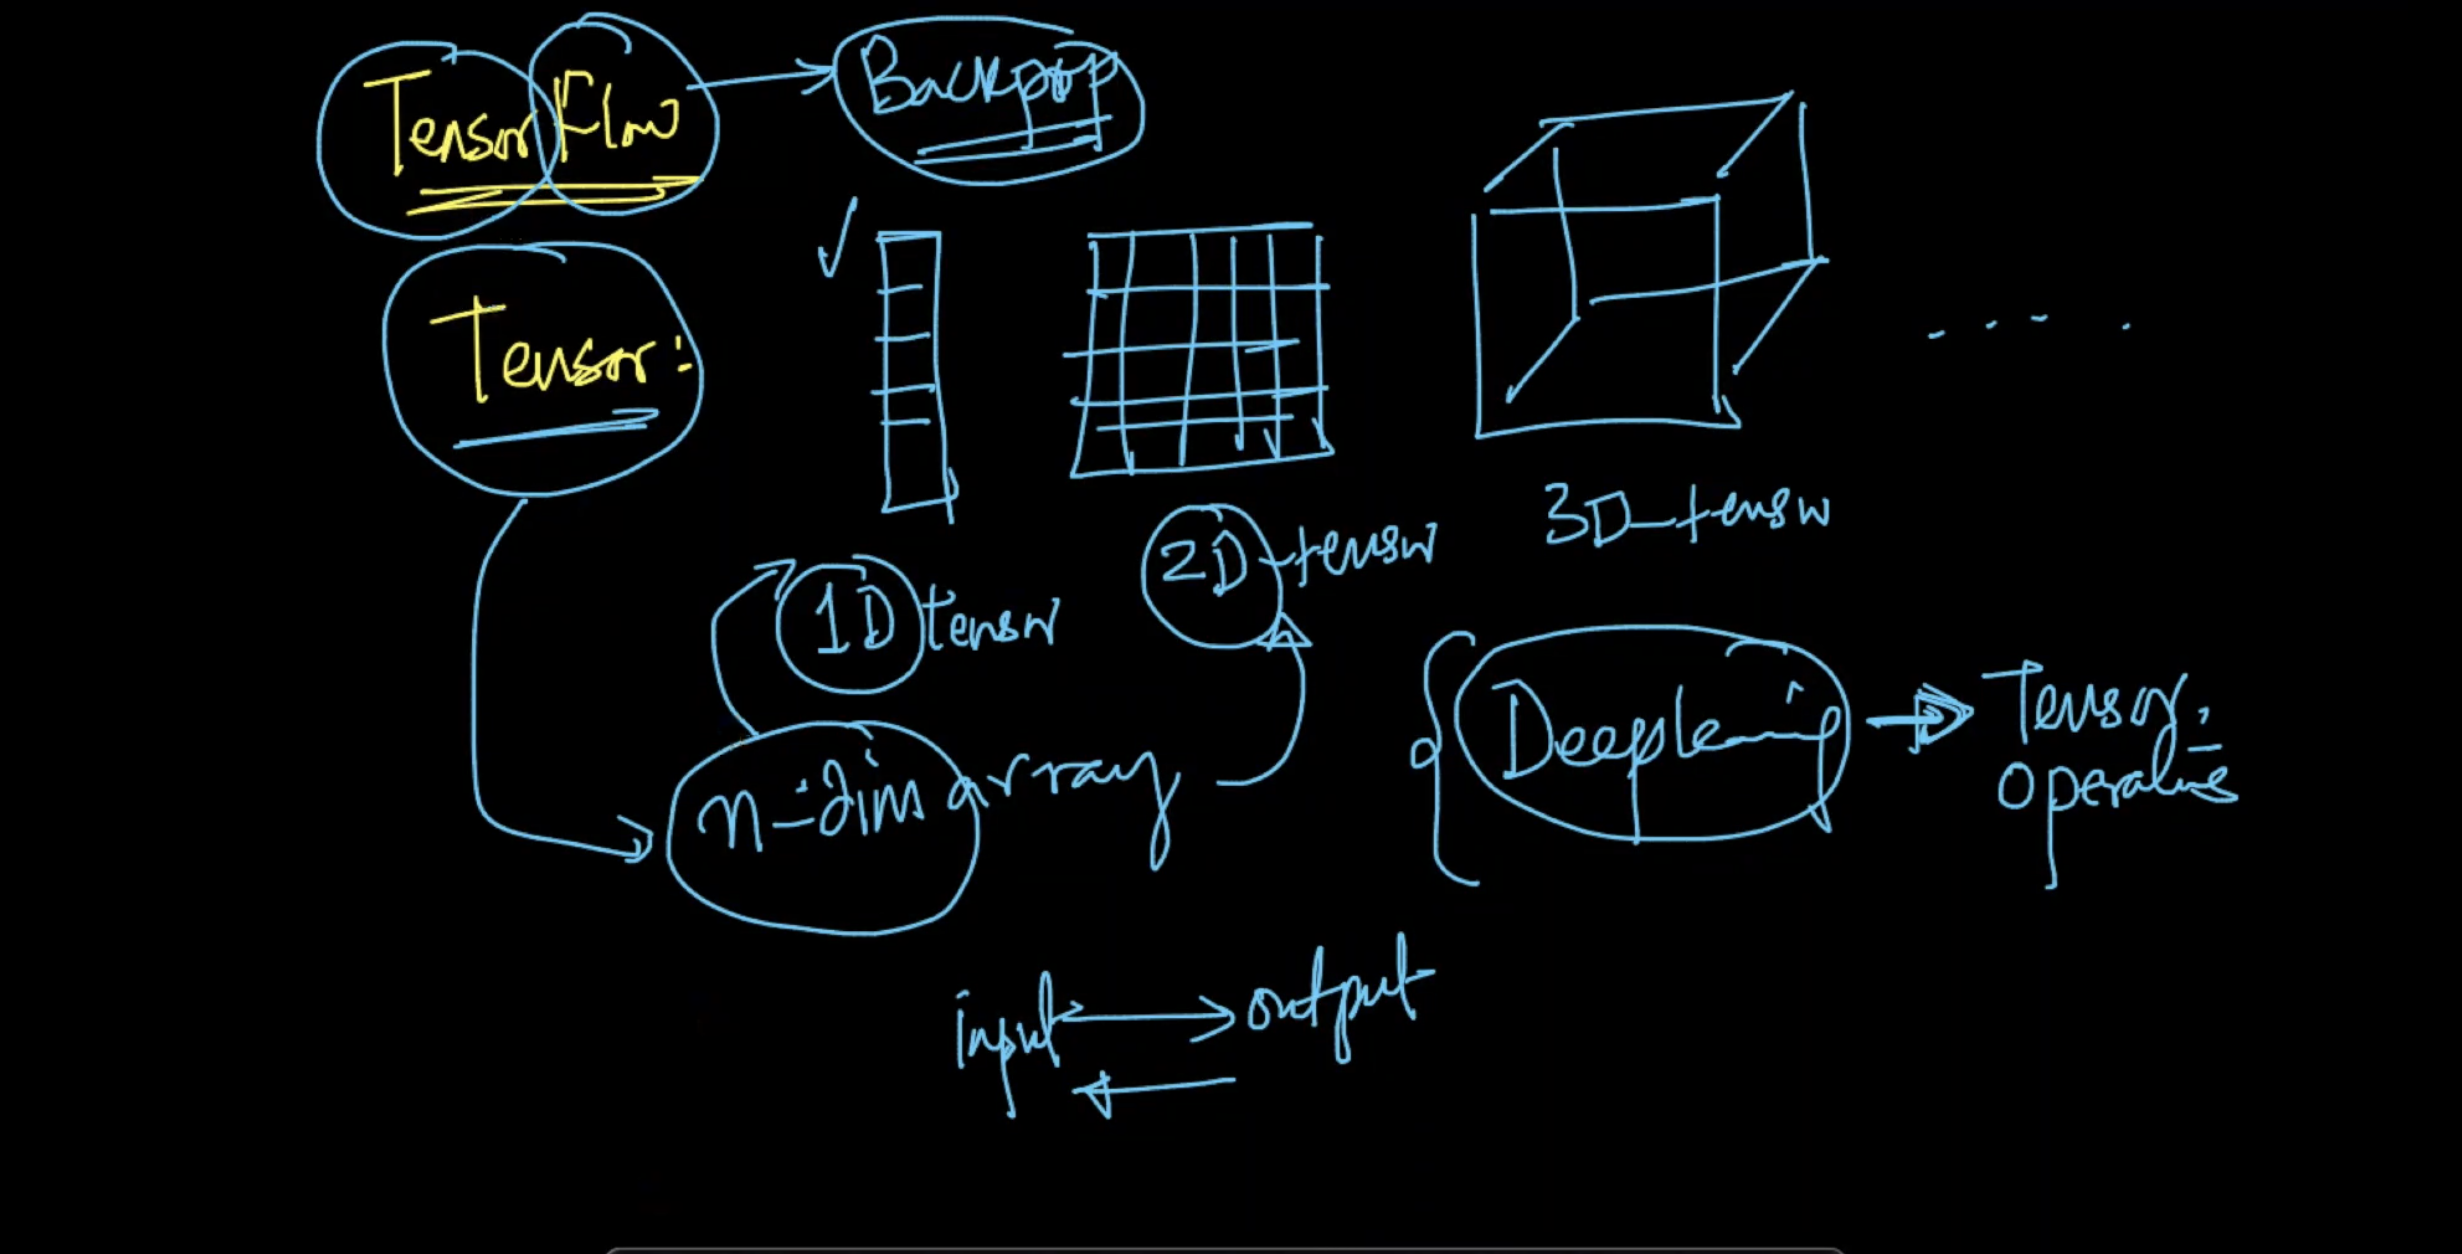 TensorFlow
Backprop
Tensor:
1D tensor
2D-tensor
3D-tensor
n-dim array
Deeplearning
Tensor
operations
input
output